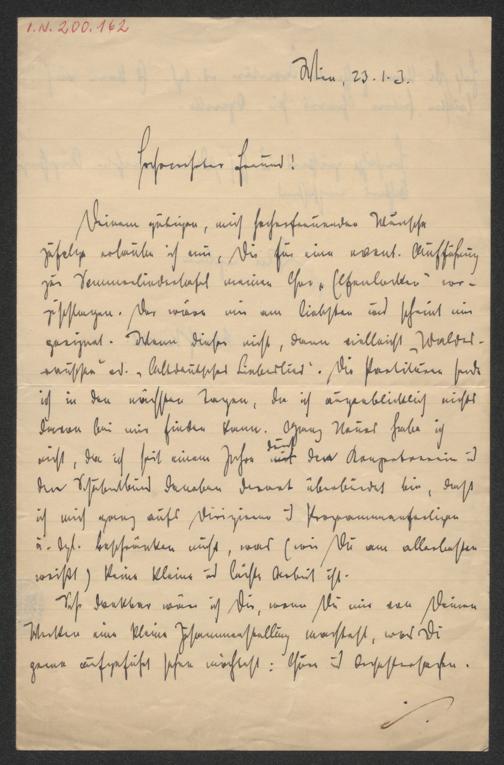 I.N. 200.162
Wien, 23.1.3.
Hochverehrter Freund!
Deinem gütigen, mich hocherfreuenden Wunsche
zufolge erlaube ich mir, Dir für eine event. Aufführung
zur Sommerliedertafel meinen Chor „Elfenlocken" vor-
zuschlagen. Der wäre mir am liebsten und scheint mir
geeignet. Wenn dieser nicht, dann vielleicht „Waldes-
rauschen" od. „Altdeutsches Liebeslied". Die Partituren sende
ich in den nächsten Tagen, da ich augenblicklich nichts
davon bei mir finden kann. Ganz Neues habe ich
nicht, da ich seit einem Jahre durch den Konzertverein u
den Schubertbund daneben derart überbürdet bin, daß
ich mich ganz aufs Dirigieren u Programmanfertigen
u. dgl. beschränken muß, was (wie Du am allerbesten
weißt) keine kleine und leichte Arbeit ist.
Sehr dankbar wäre ich Dir, wenn Du mir von Deinen
Werken eine kleine Zusammenstellung machtest, was Du
gerne aufgeführt sehen möchtest: Chöre u Orchestersachen.